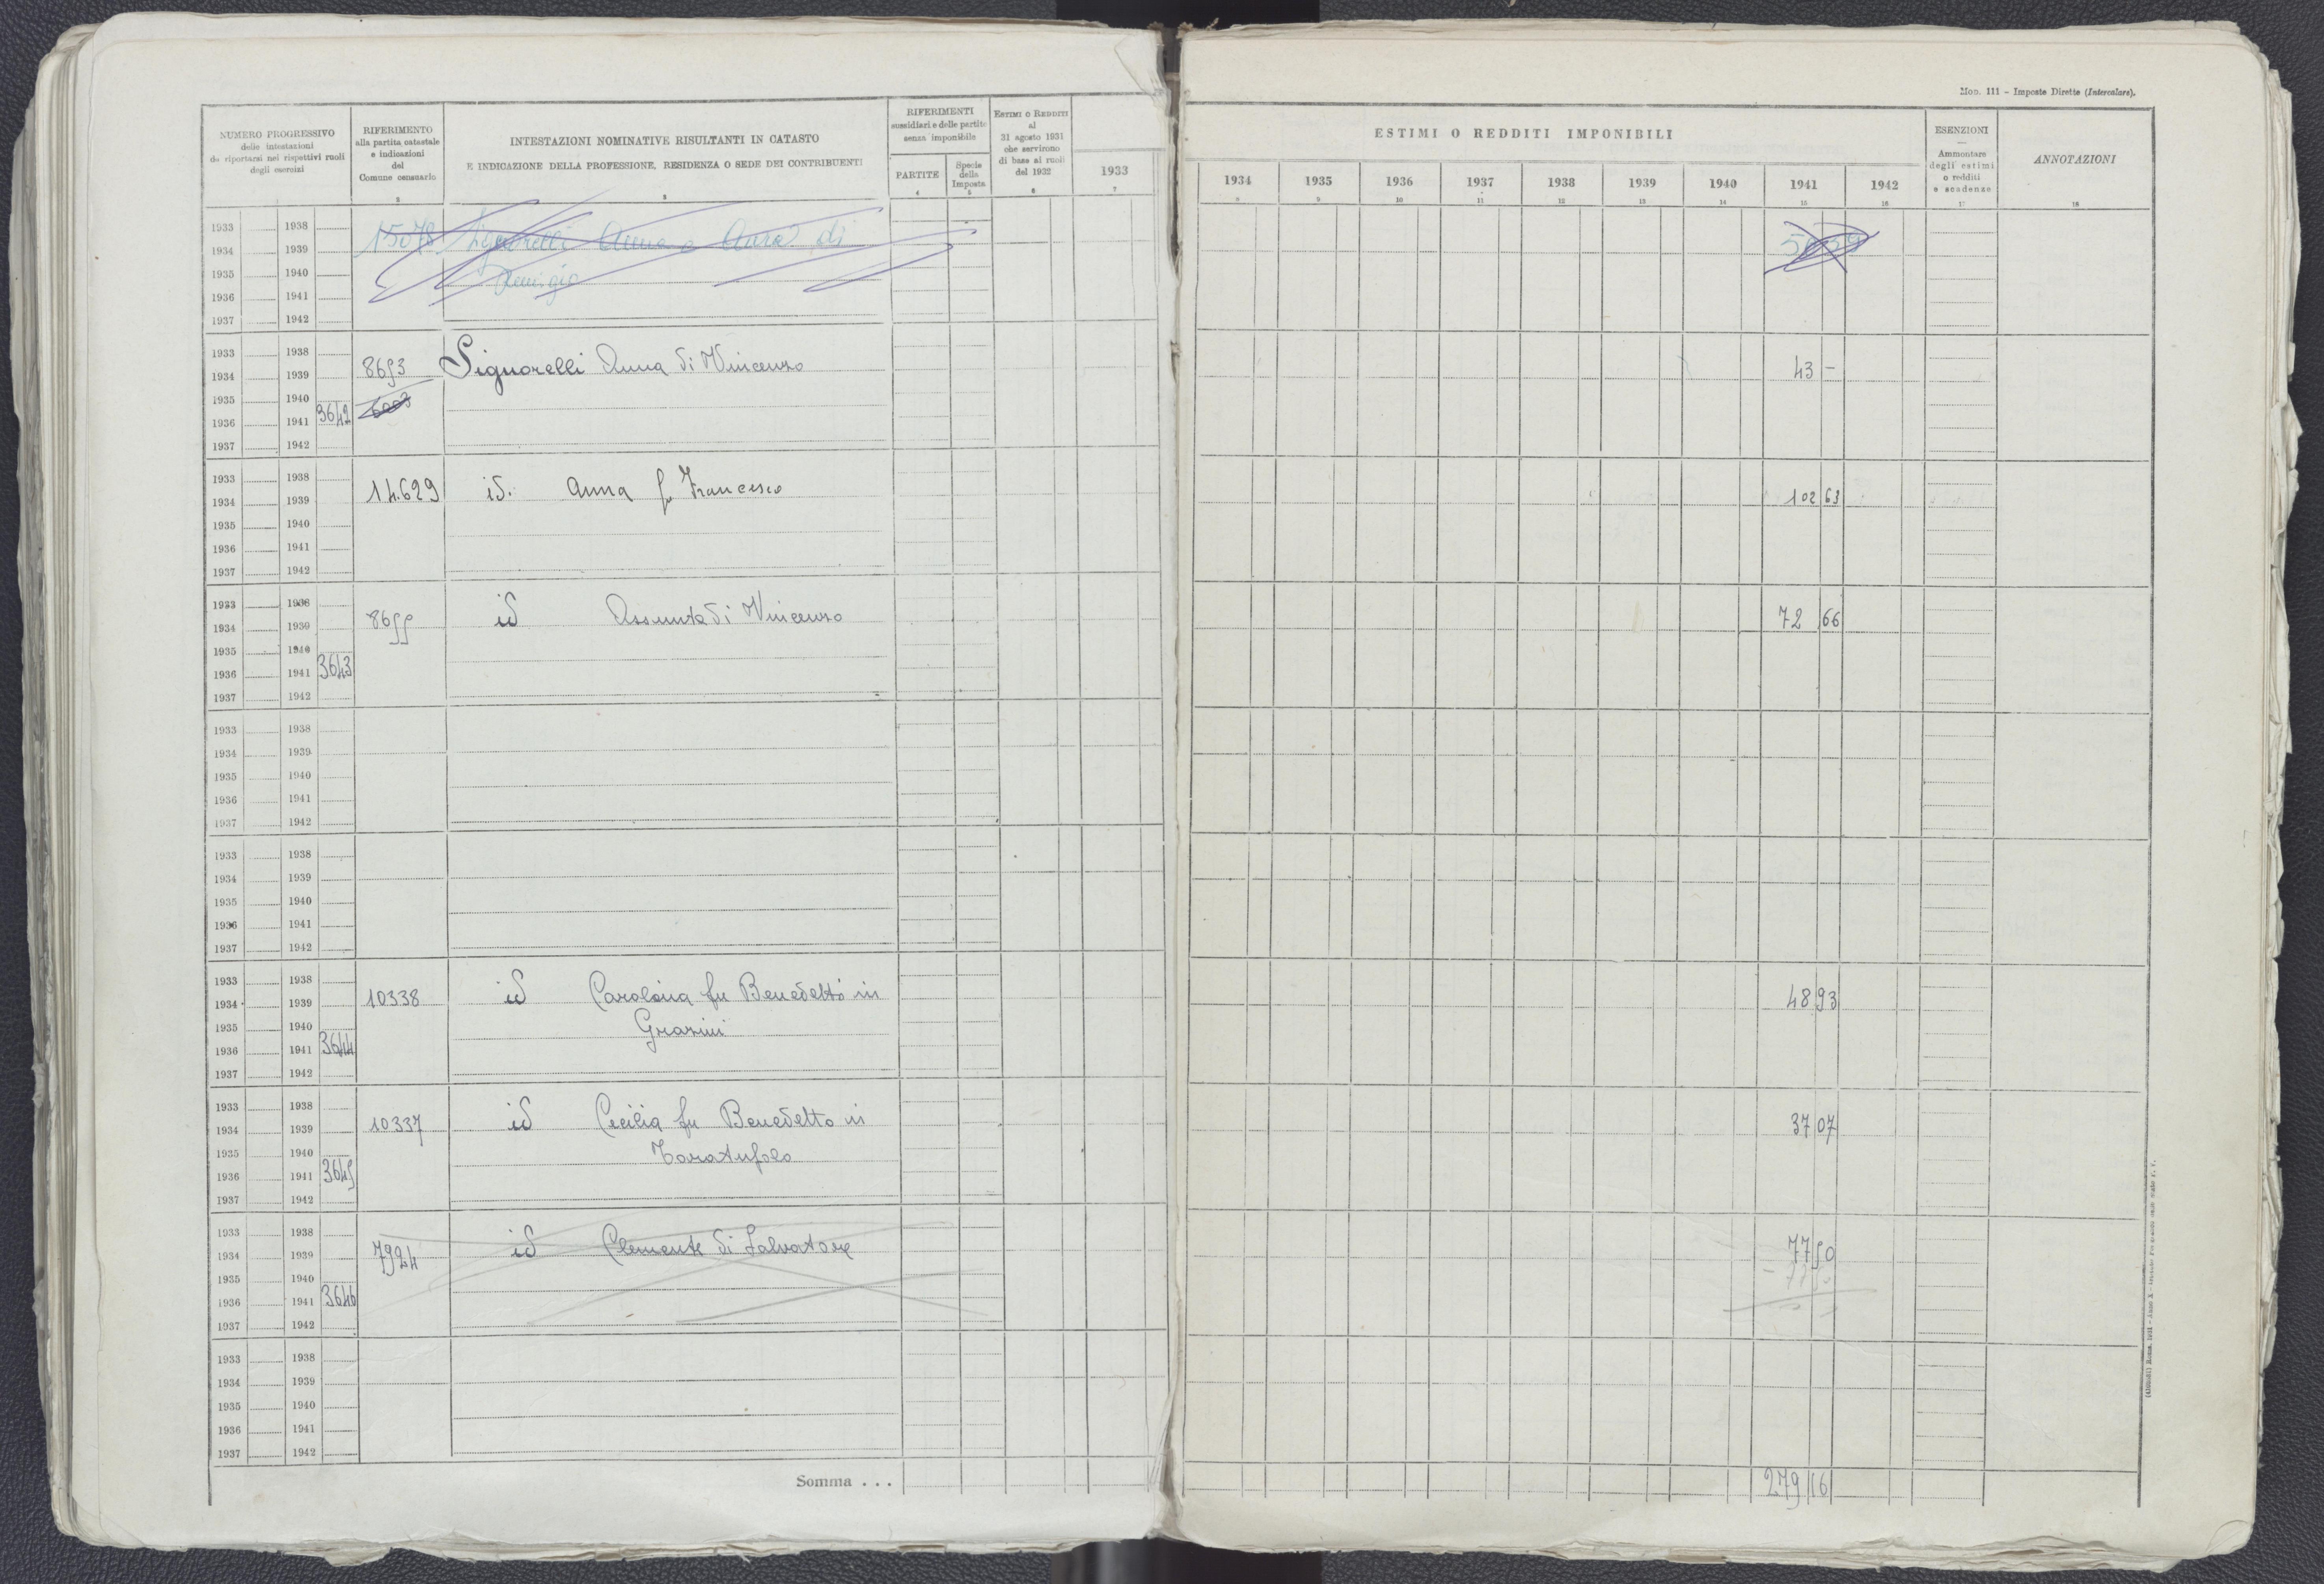 Mod. 111 - Imposte Dirette (Intercalare).
NUMERO PROGRESSIVO
delle intestazioni
da riportarsi nei rispettivi ruoli
degli esercizi
RIFERIMENTO
alla partita catastale
e indicazioni
del
Comune censuario
INTESTAZIONI NOMINATIVE RISULTANTI IN CATASTO
E INDICAZIONE DELLA PROFESSIONE, RESIDENZA O SEDE DEI CONTRIBUENTI
RIFERIMENTI
sussidiari e delle partite
senza imponibile
PARTITE
Specie
della
Imposta
ESTIMI O REDDITI
al
31 agosto 1931
che servirono
di base ai ruoli
del 1932
ESTIMI O REDDITI IMPONIBILI
1933 1934 1935 1936 1937 1938 1939 1940 1941 1942
ESENZIONI
Ammontare
degli estimi
o redditi
e scadenze
ANNOTAZIONI
3 4 5 6 7 8 9 10 11 12 13 14 15 16 17 18
1933 1938
1934 1939 15078 Signorelli Anna o Aura di
1935 1940 Remigio
1936 1941
1937 1942
1933 1938
1934 1939 8653 Signorelli Anna di Vincenzo 43 -
1935 1940
1936 1941 3642
1937 1942
1933 1938
1934 1939 14.629 id. Anna fu Francesco 102 63
1935 1940
1936 1941
1937 1942
1933 1938
1934 1939 8655 id Assunta di Vincenzo 72 66
1935 1940
1936 1941 3643
1937 1942
1933 1938
1934 1939
1935 1940
1936 1941
1937 1942
1933 1938
1934 1939
1935 1940
1936 1941
1937 1942
1933 1938
1934 1939 10338 id Carolina fu Benedetto in 48 93
1935 1940 Grazini
1936 1941 3644
1937 1942
1933 1938
1934 1939 10337 id Cecilia fu Benedetto in 37 07
1935 1940 Taratufolo
1936 1941 3645
1937 1942
1933 1938
1934 1939 7924 id Clemente di Salvatore 77 50
1935 1940
1936 1941 3646
1937 1942
1933 1938
1934 1939
1935 1940
1936 1941
1937 1942
Somma . . . 279 16